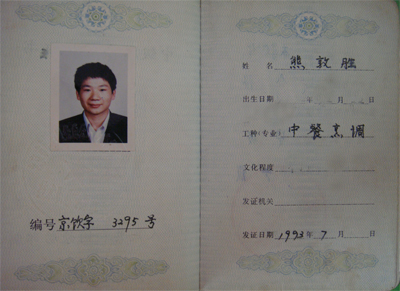 编号 京饮字 3295 号
姓名 熊敦胜
出生日期 年
工种(专业) 中餐烹调
文化程度
发证机关
发证日期 1993年7月 日